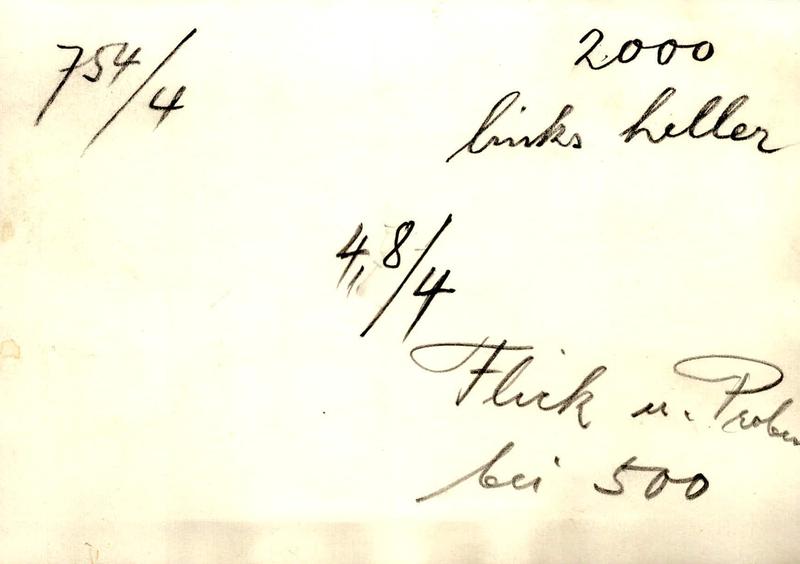 754/4
2000
links heller
4,8/4
Flick u. Proben
bei 500